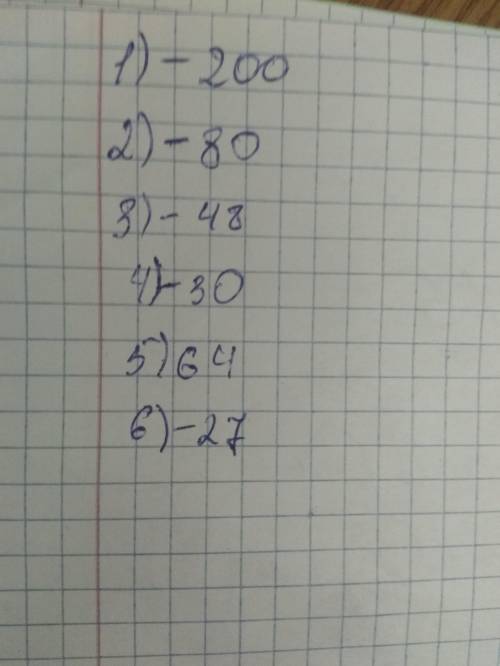 1) -200
2) -80
3) -48
4) -30
5) 64
6) -27